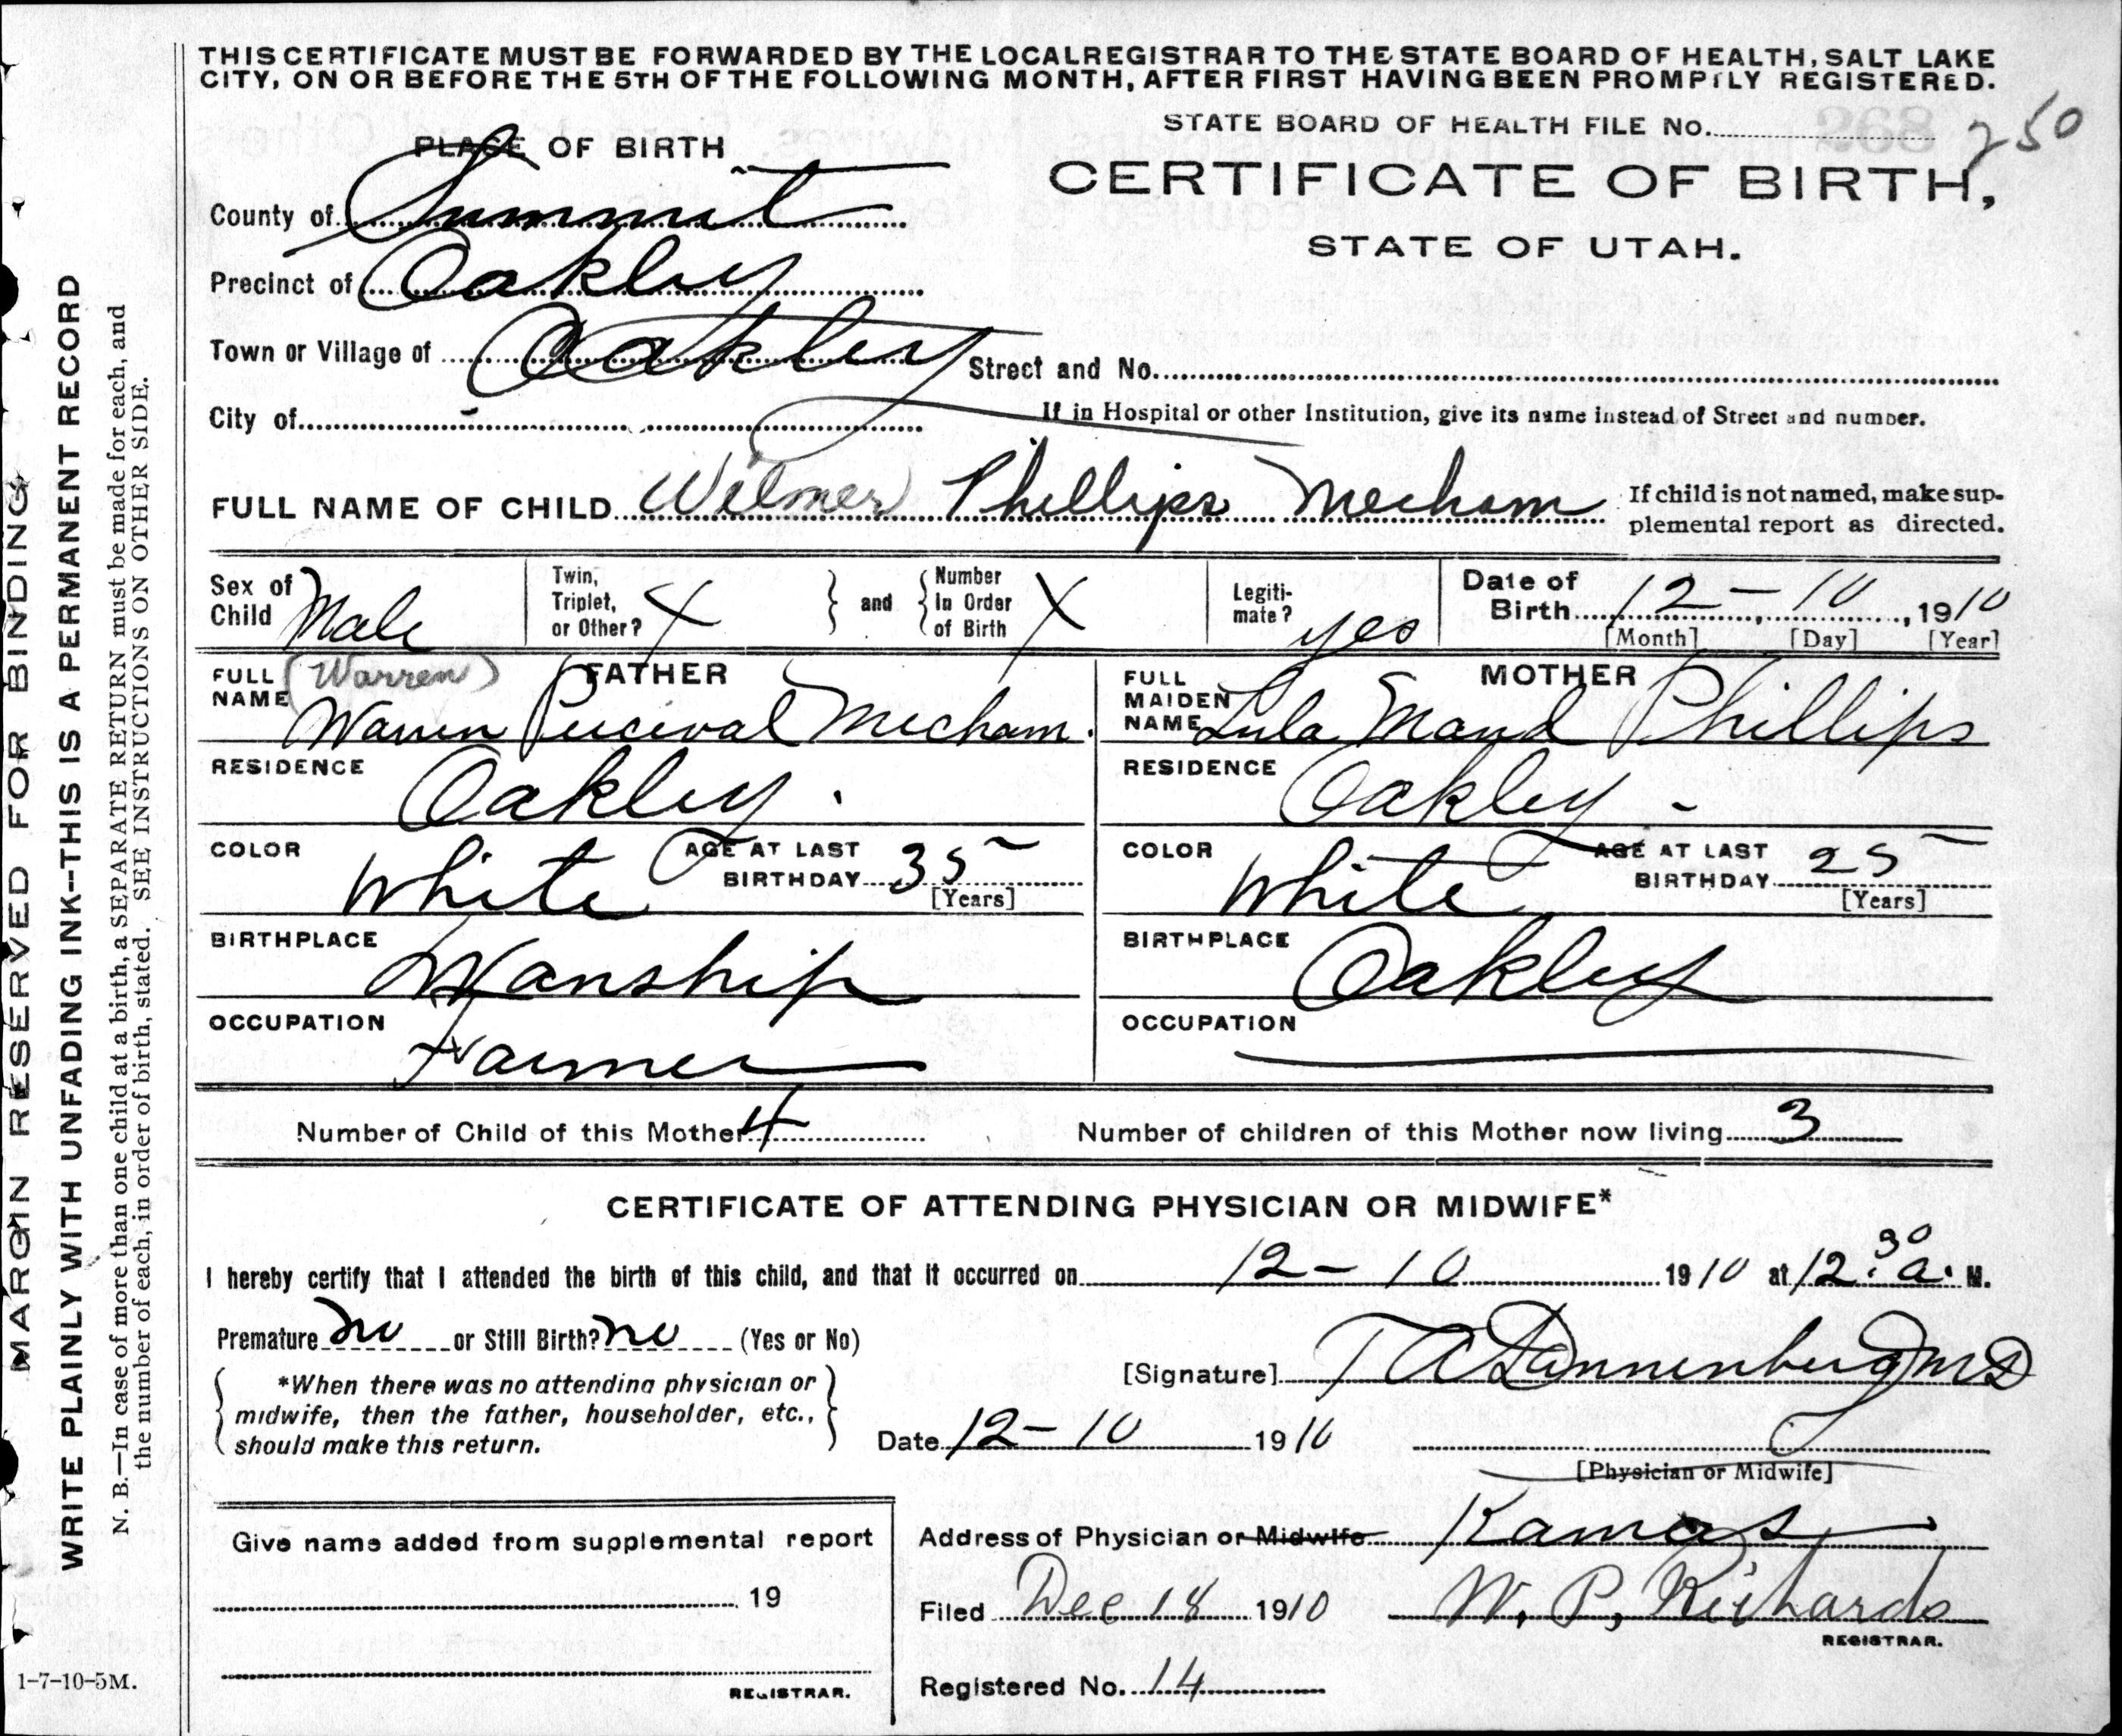 THIS CERTIFICATE MUST BE FORWARDED BY THE LOCAL REGISTRAR TO THE STATE BOARD OF HEALTH, SALT LAKE
CITY, ON OR BEFORE THE 5TH OF THE FOLLOWING MONTH, AFTER FIRST HAVING BEEN PROMPTLY REGISTERED.
STATE BOARD OF HEALTH FILE No. 268 250
PLACE OF BIRTH
CERTIFICATE OF BIRTH,
STATE OF UTAH.
County of Summit
Precinct of Oakley
Town or Village of Oakley Street and No.
City of - If in Hospital or other Institution, give its name instead of Street and number.
FULL NAME OF CHILD Wilmer Phillips Mecham If child is not named, make sup-
plemental report as directed.
Sex of Child Male Twin, Triplet, or Other? X and Number In Order of Birth X Legiti-mate? yes Date of Birth 12 - 10, 1910
[Month] [Day] [Year]
FATHER
FULL NAME (Warren)
Warren Perceval Mecham.
RESIDENCE Oakley.
COLOR White AGE AT LAST BIRTHDAY 35
[Years]
BIRTHPLACE Wanship
OCCUPATION Farmer
MOTHER
FULL MAIDEN NAME Lula Maud Phillips
RESIDENCE Oakley -
COLOR White AGE AT LAST BIRTHDAY 25
[Years]
BIRTHPLACE Oakley
OCCUPATION
Number of Child of this Mother 4 Number of children of this Mother now living 3
CERTIFICATE OF ATTENDING PHYSICIAN OR MIDWIFE*
I hereby certify that I attended the birth of this child, and that it occurred on 12 - 10 1910 at 12:30 a. M.
Premature no or Still Birth? no (Yes or No)
[Signature] T A Dannenberg MD
*When there was no attending physician or
midwife, then the father, householder, etc.,
should make this return.
Date 12 - 10 1910
[Physician or Midwife]
Give name added from supplemental report
19
REGISTRAR.
Address of Physician or Midwife Kamas
Filed Dec 18 1910 W. P. Richards
REGISTRAR.
Registered No. 14
MARGIN RESERVED FOR BINDING
WRITE PLAINLY WITH UNFADING INK—THIS IS A PERMANENT RECORD
N. B.—In case of more than one child at a birth, a SEPARATE RETURN must be made for each, and
the number of each, in order of birth, stated. SEE INSTRUCTIONS ON OTHER SIDE.
1-7-10-5M.